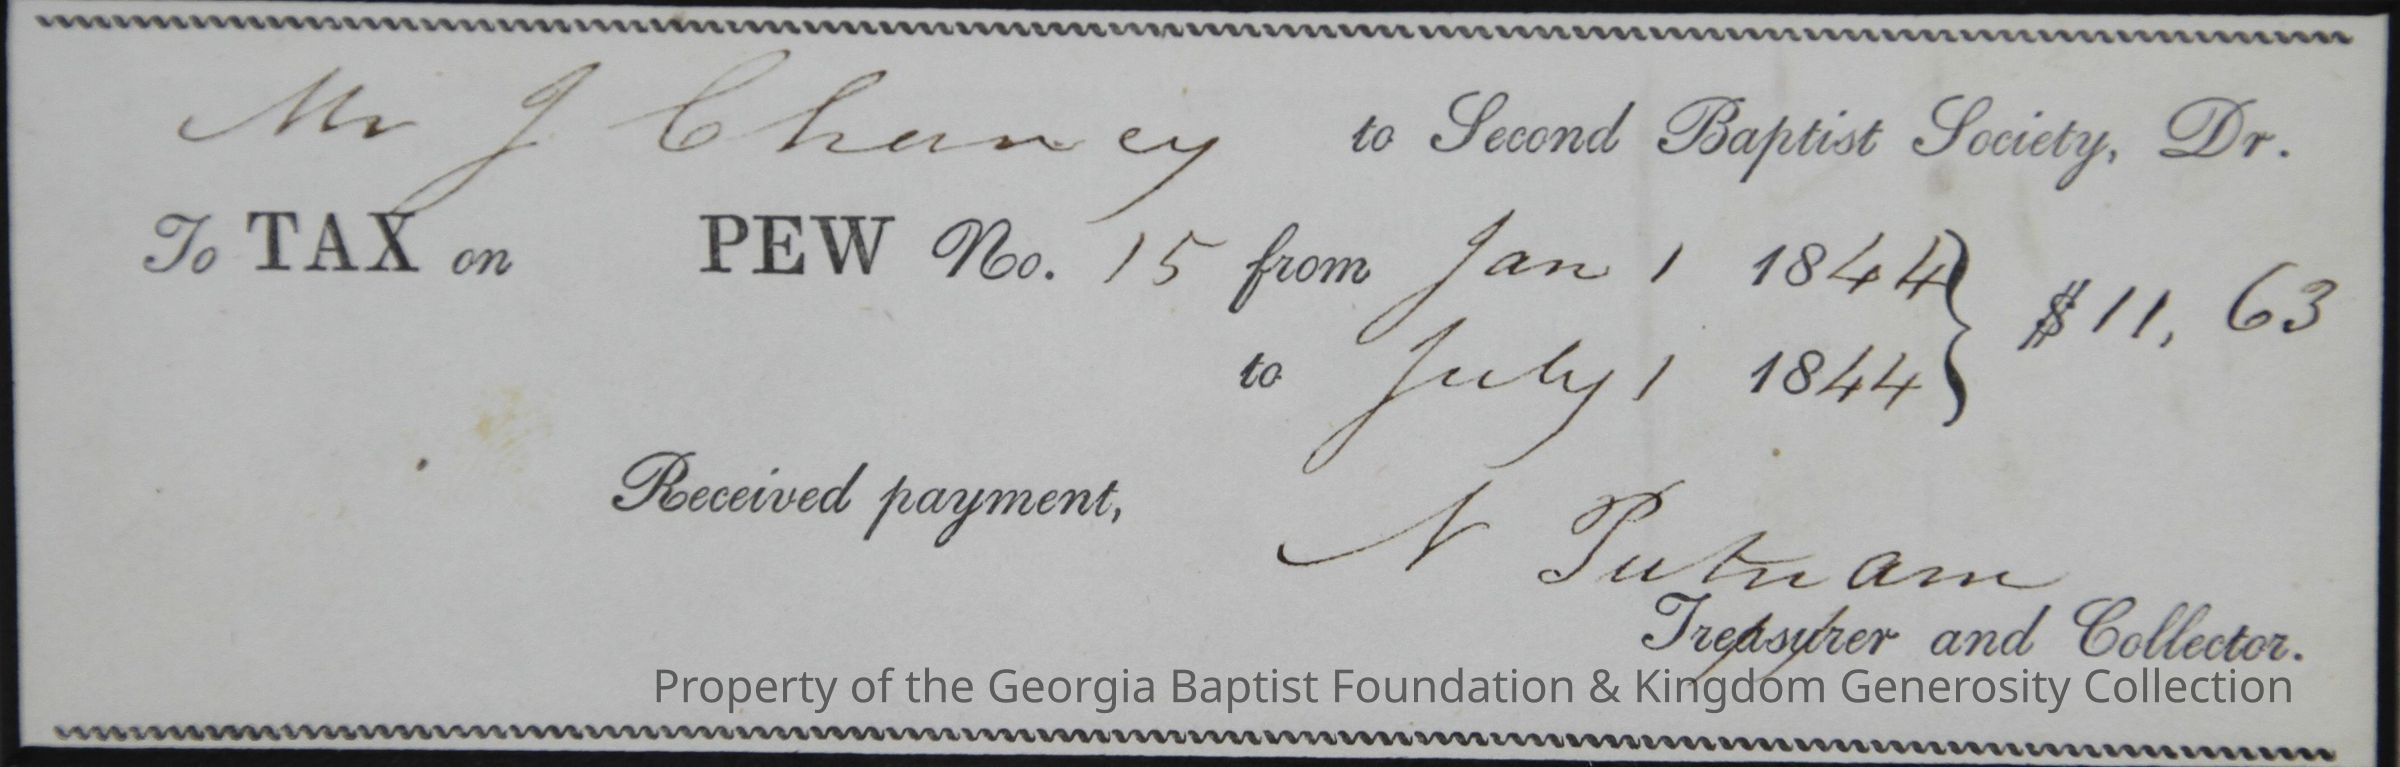 Mr J Chaney to Second Baptist Society, Dr.
To TAX on PEW No. 15 from Jan 1 1844 } $11,63
to July 1 1844
Received payment,
N Putnam
Treasurer and Collector.
Property of the Georgia Baptist Foundation & Kingdom Generosity Collection